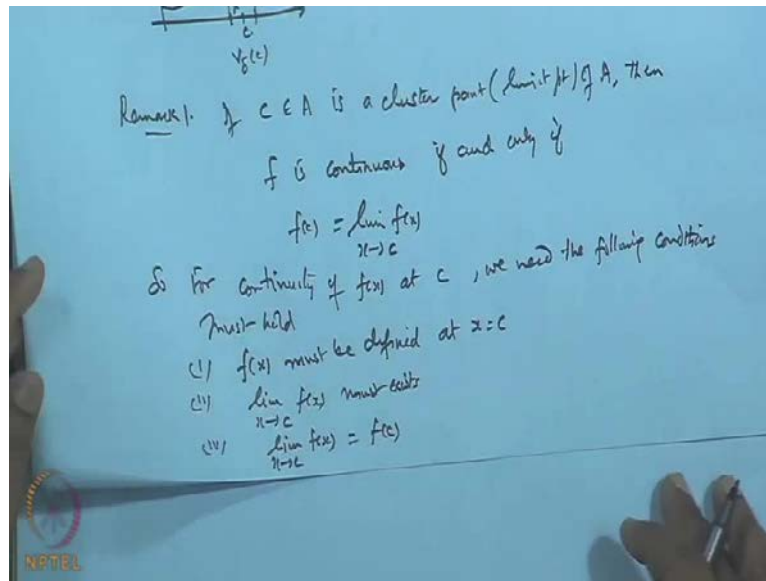 c
V_δ(c)
Remark 1. If c ∈ A is a cluster point (limit pt) of A, then
f is continuous if and only if
f(c) = lim f(x)
x→c
So For continuity of f(x) at c, we need the following conditions
must hold
(i) f(x) must be defined at x=c
(ii) lim f(x) must exists
x→c
(iii) lim f(x) = f(c)
x→c
NPTEL